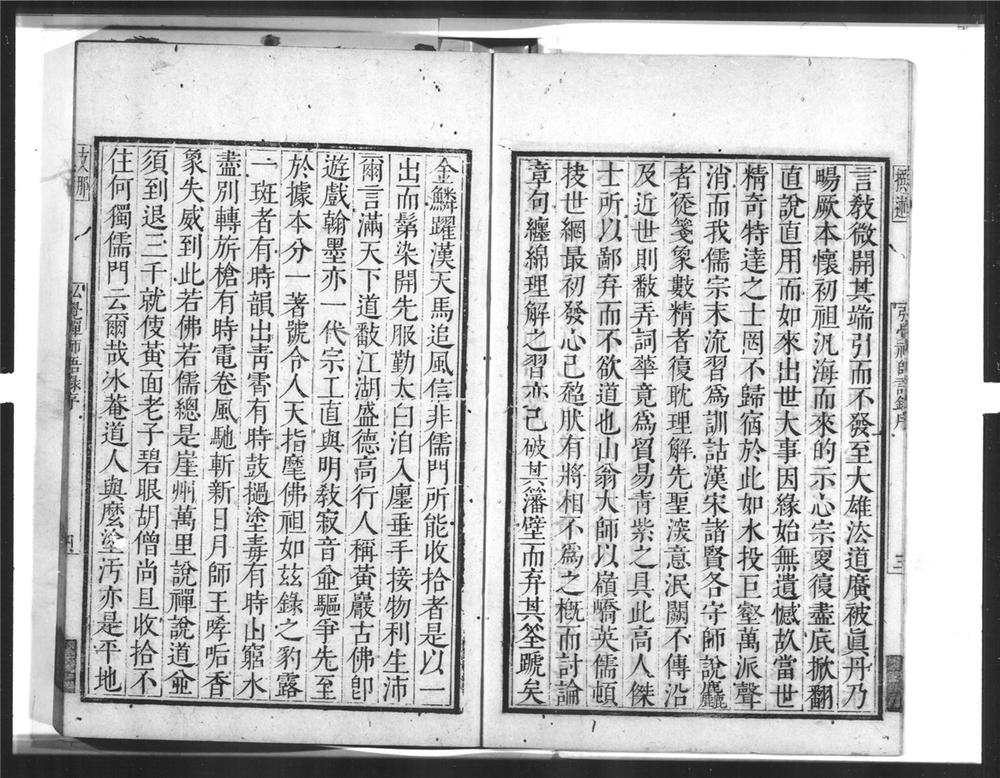 言敎微開其端引而不發至大雄法道廣被眞丹乃
暢厥本懷初祖汎海而來的示心宗夏復盡底掀翻
直說直用而如來出世大事因緣始無遺憾故當世
精奇特達之士罔不歸宿於此如水投巨壑萬派聲
消而我儒宗末流習爲訓詁漢宋諸賢各守師說麤
者從箋象數精者復耽理解先聖深意泯闕不傳沿
及近世則翻弄詞華竟爲貿易青紫之具此高人傑
士所以鄙弃而不欲道也山翁大師以嶺嶠英儒頓
投世網最初發心已超肰有將相不爲之槪而討論
章句纏綿理解之習亦已破其籓壁而弃其筌蹏矣
金鱗躍漢天馬追風信非儒門所能收拾者是以一
出而鬀染開先服勤太白洎入廛垂手接物利生沛
爾言滿天下道翻江湖盛德高行人稱黃巖古佛卽
遊戲翰墨亦一代宗工直與明敎寂音並驅爭先至
於據本分一著號令人天指麾佛祖如茲錄之豹露
一斑者有時韻出靑霄有時鼓撾塗毒有時山窮水
盡別轉旂槍有時電卷風馳斬新日月師王哮咶香
象失威到此若佛若儒總是崖州萬里說禪說道並
須到退三千就使黃面老子碧眼胡僧尚且收拾不
住何獨儒門云爾哉冰菴道人與麼塗汚亦是平地